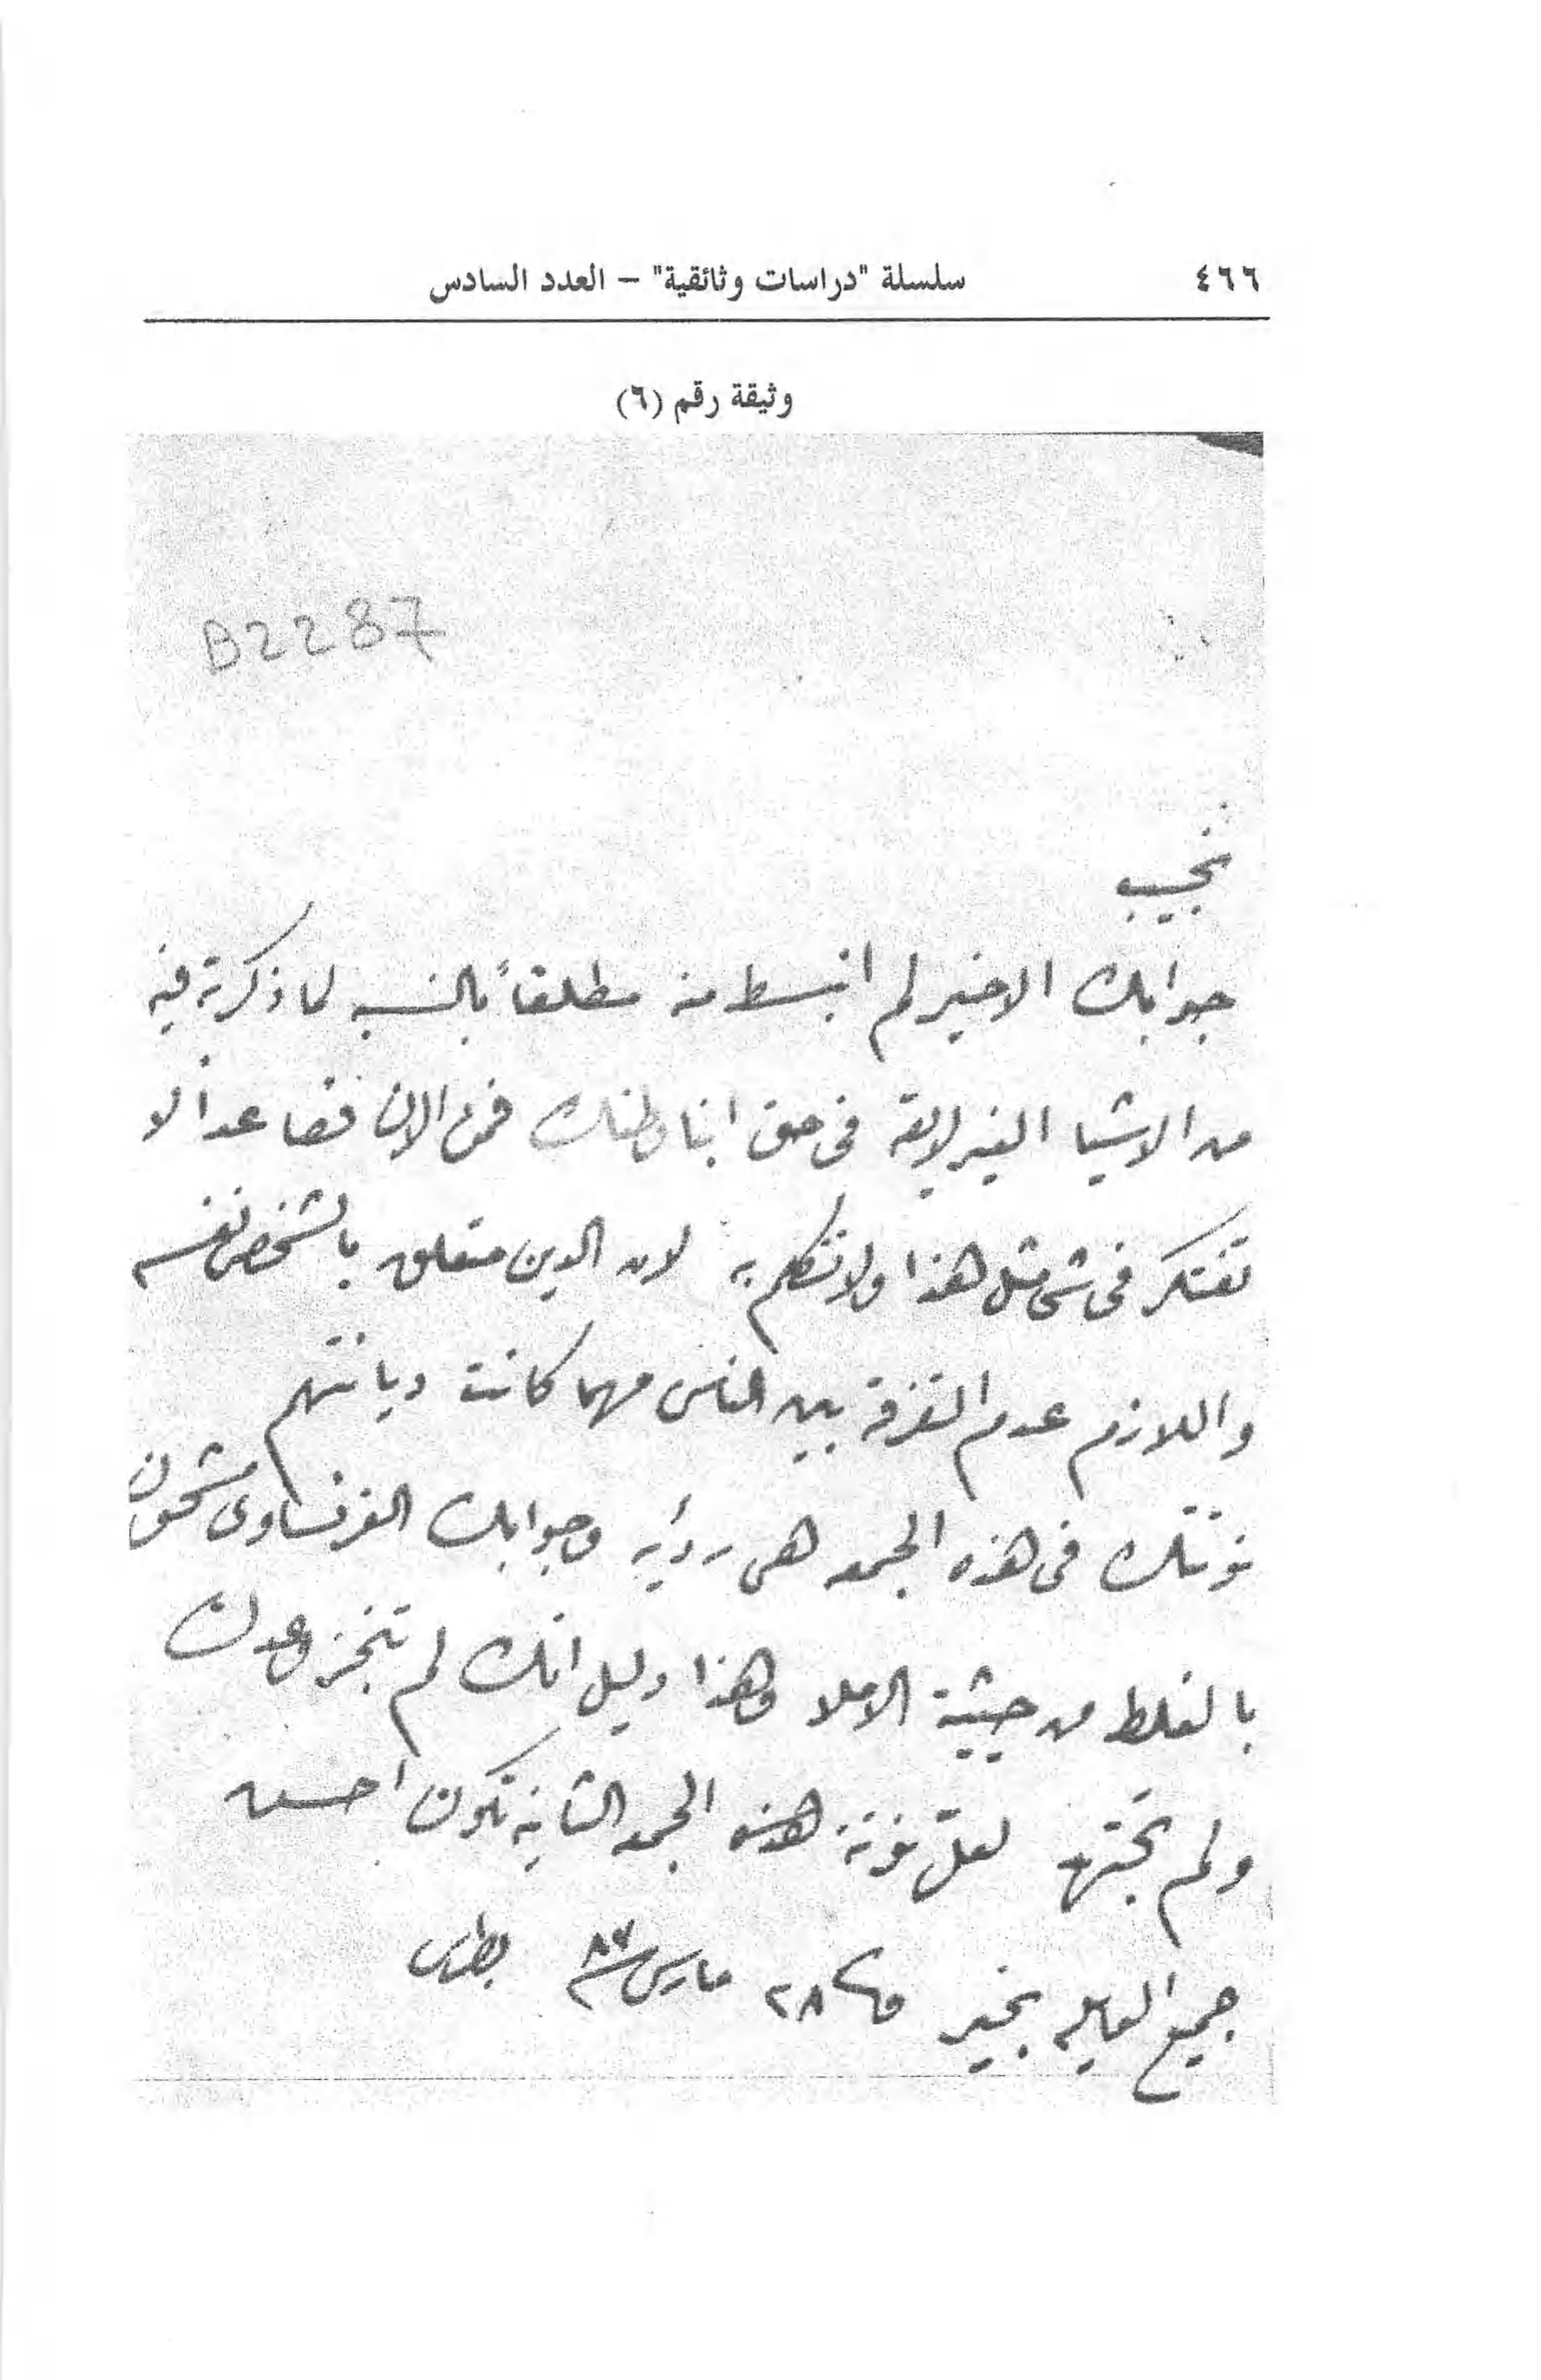 ٤٦٦ سلسلة "دراسات وثائقية" – العدد السادس
وثيقة رقم (٦)
B2287
نجيب
جوابك الاخير لم انبسط منه مطلقاً بالنسبه لما ذكرته فيه
من الاشيا الغير لايقة فى حق ابنا وطنك فمن الان فصاعداً لا
تفتكر فى شى مثل هذا ولا تتكلم به لان الدين متعلق بالشخص نفسه
واللازم عدم التفرقة بين الناس مهما كانت ديانتهم
نوتتك فى هذه الجمعه هى رديئه وجوابك الفرنساوى مشحون
بالغلط من حيثية الاملا وهذا دليل انك لم تنجز وعدك
ولم تجتهد لعل نوتة هذه الجمعه الثانيه تكون احسن
جميع العايله بخير فى ٢٨ مارس سنة ٨٧ بطرس